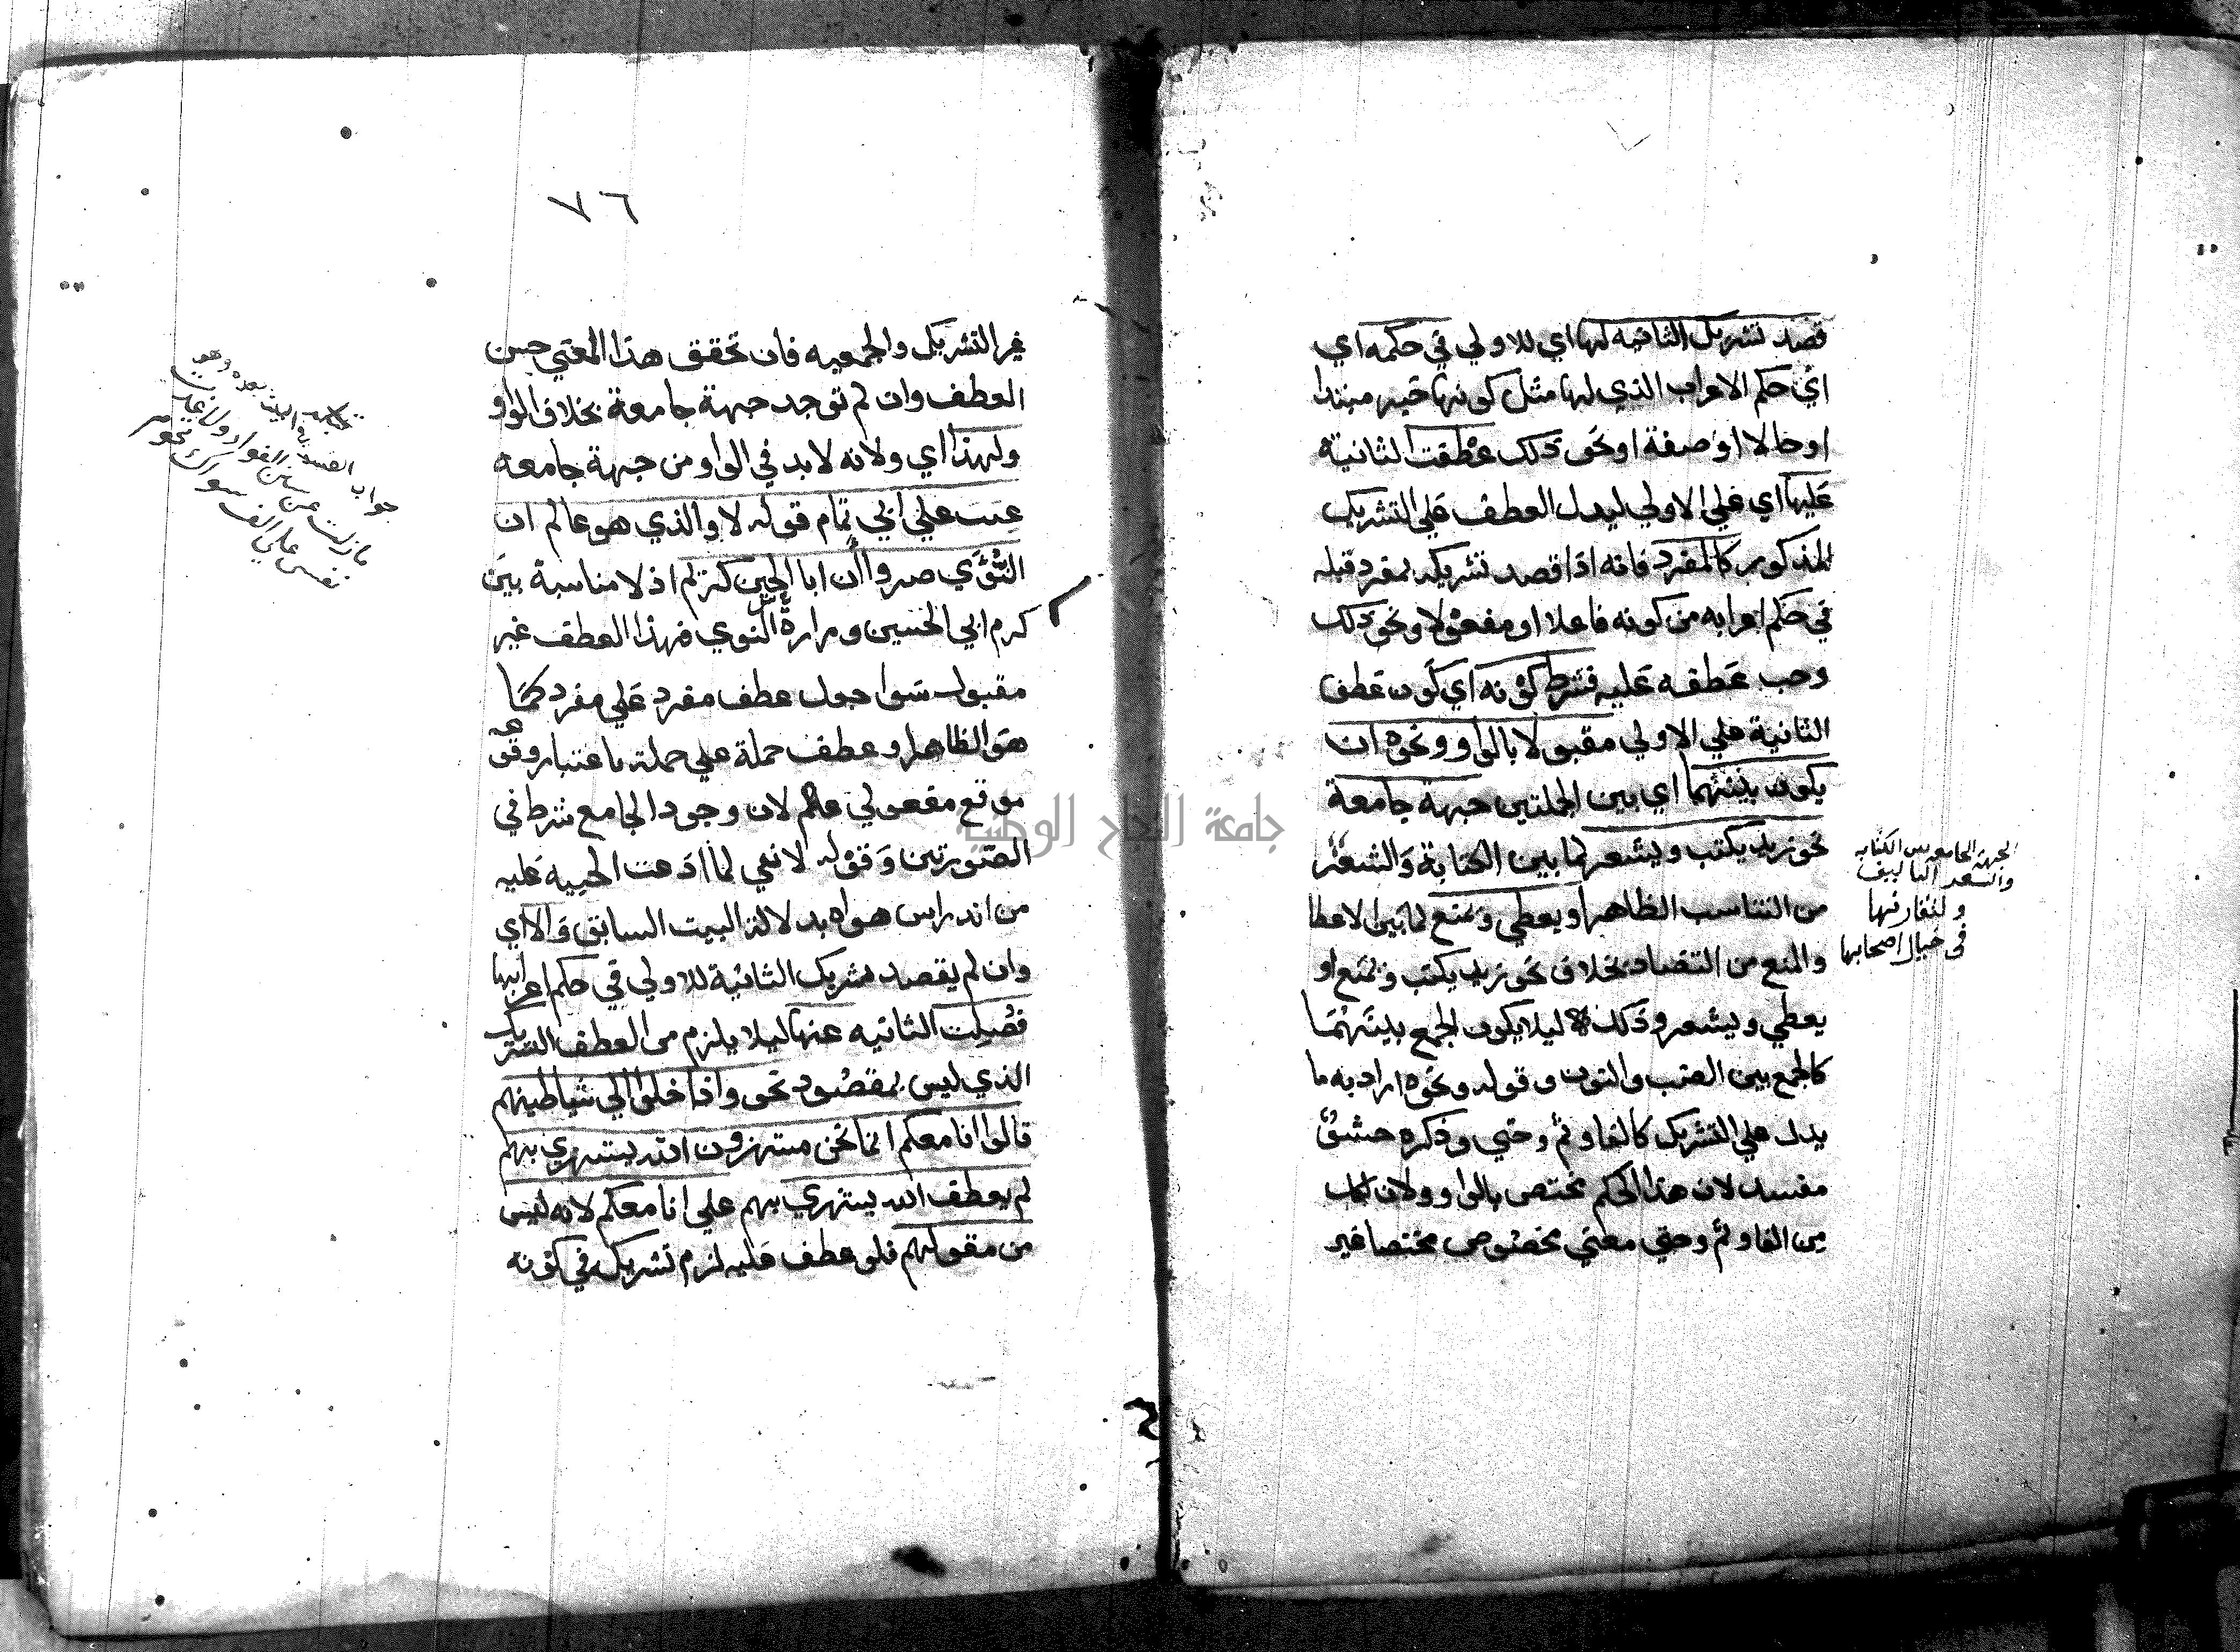 قصد تشريك الثانيه لها اي للاولي في حكمه اي
اي حكم الاعراب الذي لها مثل كونها خبر مبتدا
او حالا او صفة او نحو ذلك عطفت الثانية
عليها اي علي الاولي ليدل العطف علي التشريك
المذكور كالمفرد فانه اذا قصد تشريكه لمفرد قبله
في حكم اعرابه من كونه فاعلا او مفعولا او نحو ذلك
وجب عطفه عليه فشرط كونه اي كون عطف
الثانية علي الاولي مقبولا بالواو ونحوه ان
يكون بينهما اي بين الجملتين جهة جامعة
نحو زيد يكتب ويشعر لما بين الكتابة والشعر
من التناسب الظاهر او يعطي ويمنع لما بين الاعطا
والمنع من التضاد بخلاف نحو زيد يكتب ويمنع او
يعطي ويشعر وذلك ليلا يكون الجمع بينهما
كالجمع بين الضب والنون وقوله ونحوه اراد به ما
يدل علي التشريك كالفا وثم وحتي وذكره حشو
مفسد لان هذا الحكم مختص بالواو ولان لكل
من الفا وثم وحتي معني مخصوص مختصا غير
الجهة الجامعه بين الكتابه
والشعر التاليف
ولتقارنها
في خيال اصحابها
٧٦
غير التشريك والجمعيه فان تحقق هذا المعني حسن
العطف وان لم توجد جهة جامعة بخلاف الواو
ولهذا اي ولانه لا بد في الواو من جهة جامعه
عيب علي ابي تمام قوله لا والذي هو عالم ان
النوي صبر وأن ابا الحسين كريم اذ لا مناسبة بين
كرم ابي الحسين ومرارة النوي فهذا العطف غير
مقبول سوا جعل عطف مفرد علي مفرد كما
هو الظاهر او عطف جملة علي جملة باعتبار وقوعه
موقع مفعولي عالم لان وجود الجامع شرط في
الصورتين وقوله لا نفي لما ادعت الحبيبه عليه
من اندراس هواه بدلالة البيت السابق والا اي
وان لم يقصد تشريك الثانية للاولي في حكم اعرابها
فصلت الثانيه عنها ليلا يلزم من العطف التشريك
الذي ليس بمقصود نحو واذا خلوا الي شياطينهم
قالوا انا معكم انما نحن مستهزون الله يستهزي بهم
لم يعطف الله يستهزي بهم علي انا معكم لانه ليس
من مقولهم فلو عطف عليه لزم تشريكه في كونه
جواب القسم في البيت بعده وهو
مازلت عن سنن الفواد ولا غدت
نفسي علي الف سواك تحوم
جامعة النجاح الوطنية